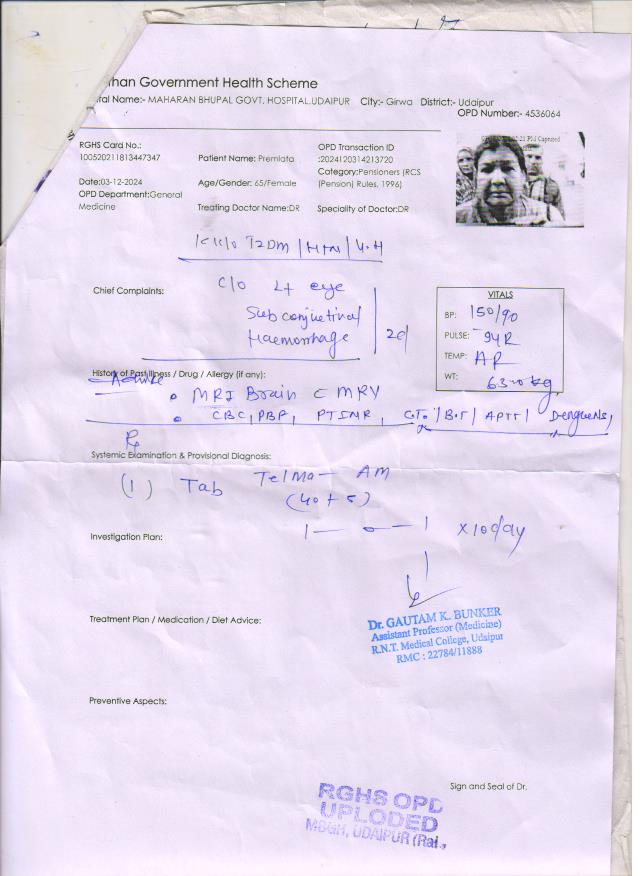 han Government Health Scheme
tal Name:- MAHARAN BHUPAL GOVT. HOSPITAL,UDAIPUR City:- Girwa District:- Udaipur
OPD Number:- 4536064
RGHS Card No.:
100520211813447347
Patient Name: Premlata
OPD Transaction ID
:2024120314213720
Category:Pensioners (RCS
(Pension) Rules, 1996)
Date:03-12-2024
OPD Department:General
Medicine
Age/Gender: 65/Female
Treating Doctor Name:DR
Speciality of Doctor:DR
K/C/O T2DM / HTN /
Chief Complaints:
C/O Lt eye
Subconjuctival
Haemorrhage
2d
VITALS
BP: 150/90
PULSE: 94
TEMP:
WT: kg
History of Past Illness / Drug / Allergy (if any):
Advice
• MRI Brain C MRV
• CBC, PBF, PTINR, C.T. / B.T / APTT /
Rx
Systemic Examination & Provisional Diagnosis:
(1) Tab Telma - AM
(40 + 5)
1 — 0 — 1 x 10 day
Investigation Plan:
Treatment Plan / Medication / Diet Advice:
Dr. GAUTAM K. BUNKER
Assistant Professor (Medicine)
R.N.T. Medical College, Udaipur
RMC : 22784/11888
Preventive Aspects:
Sign and Seal of Dr.
RGHS OPD
UPLODED
MBGH, UDAIPUR (Raj.,